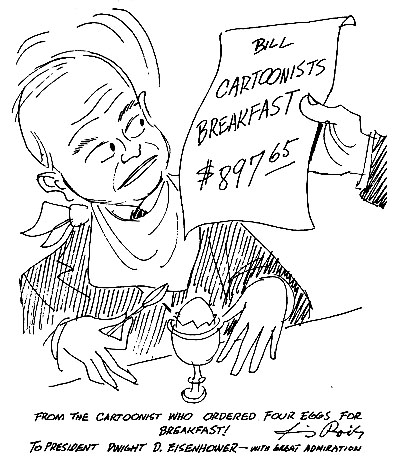 BILL
CARTOONISTS
BREAKFAST
$897.65
FROM THE CARTOONIST WHO ORDERED FOUR EGGS FOR
BREAKFAST!
TO PRESIDENT DWIGHT D. EISENHOWER — WITH GREAT ADMIRATION